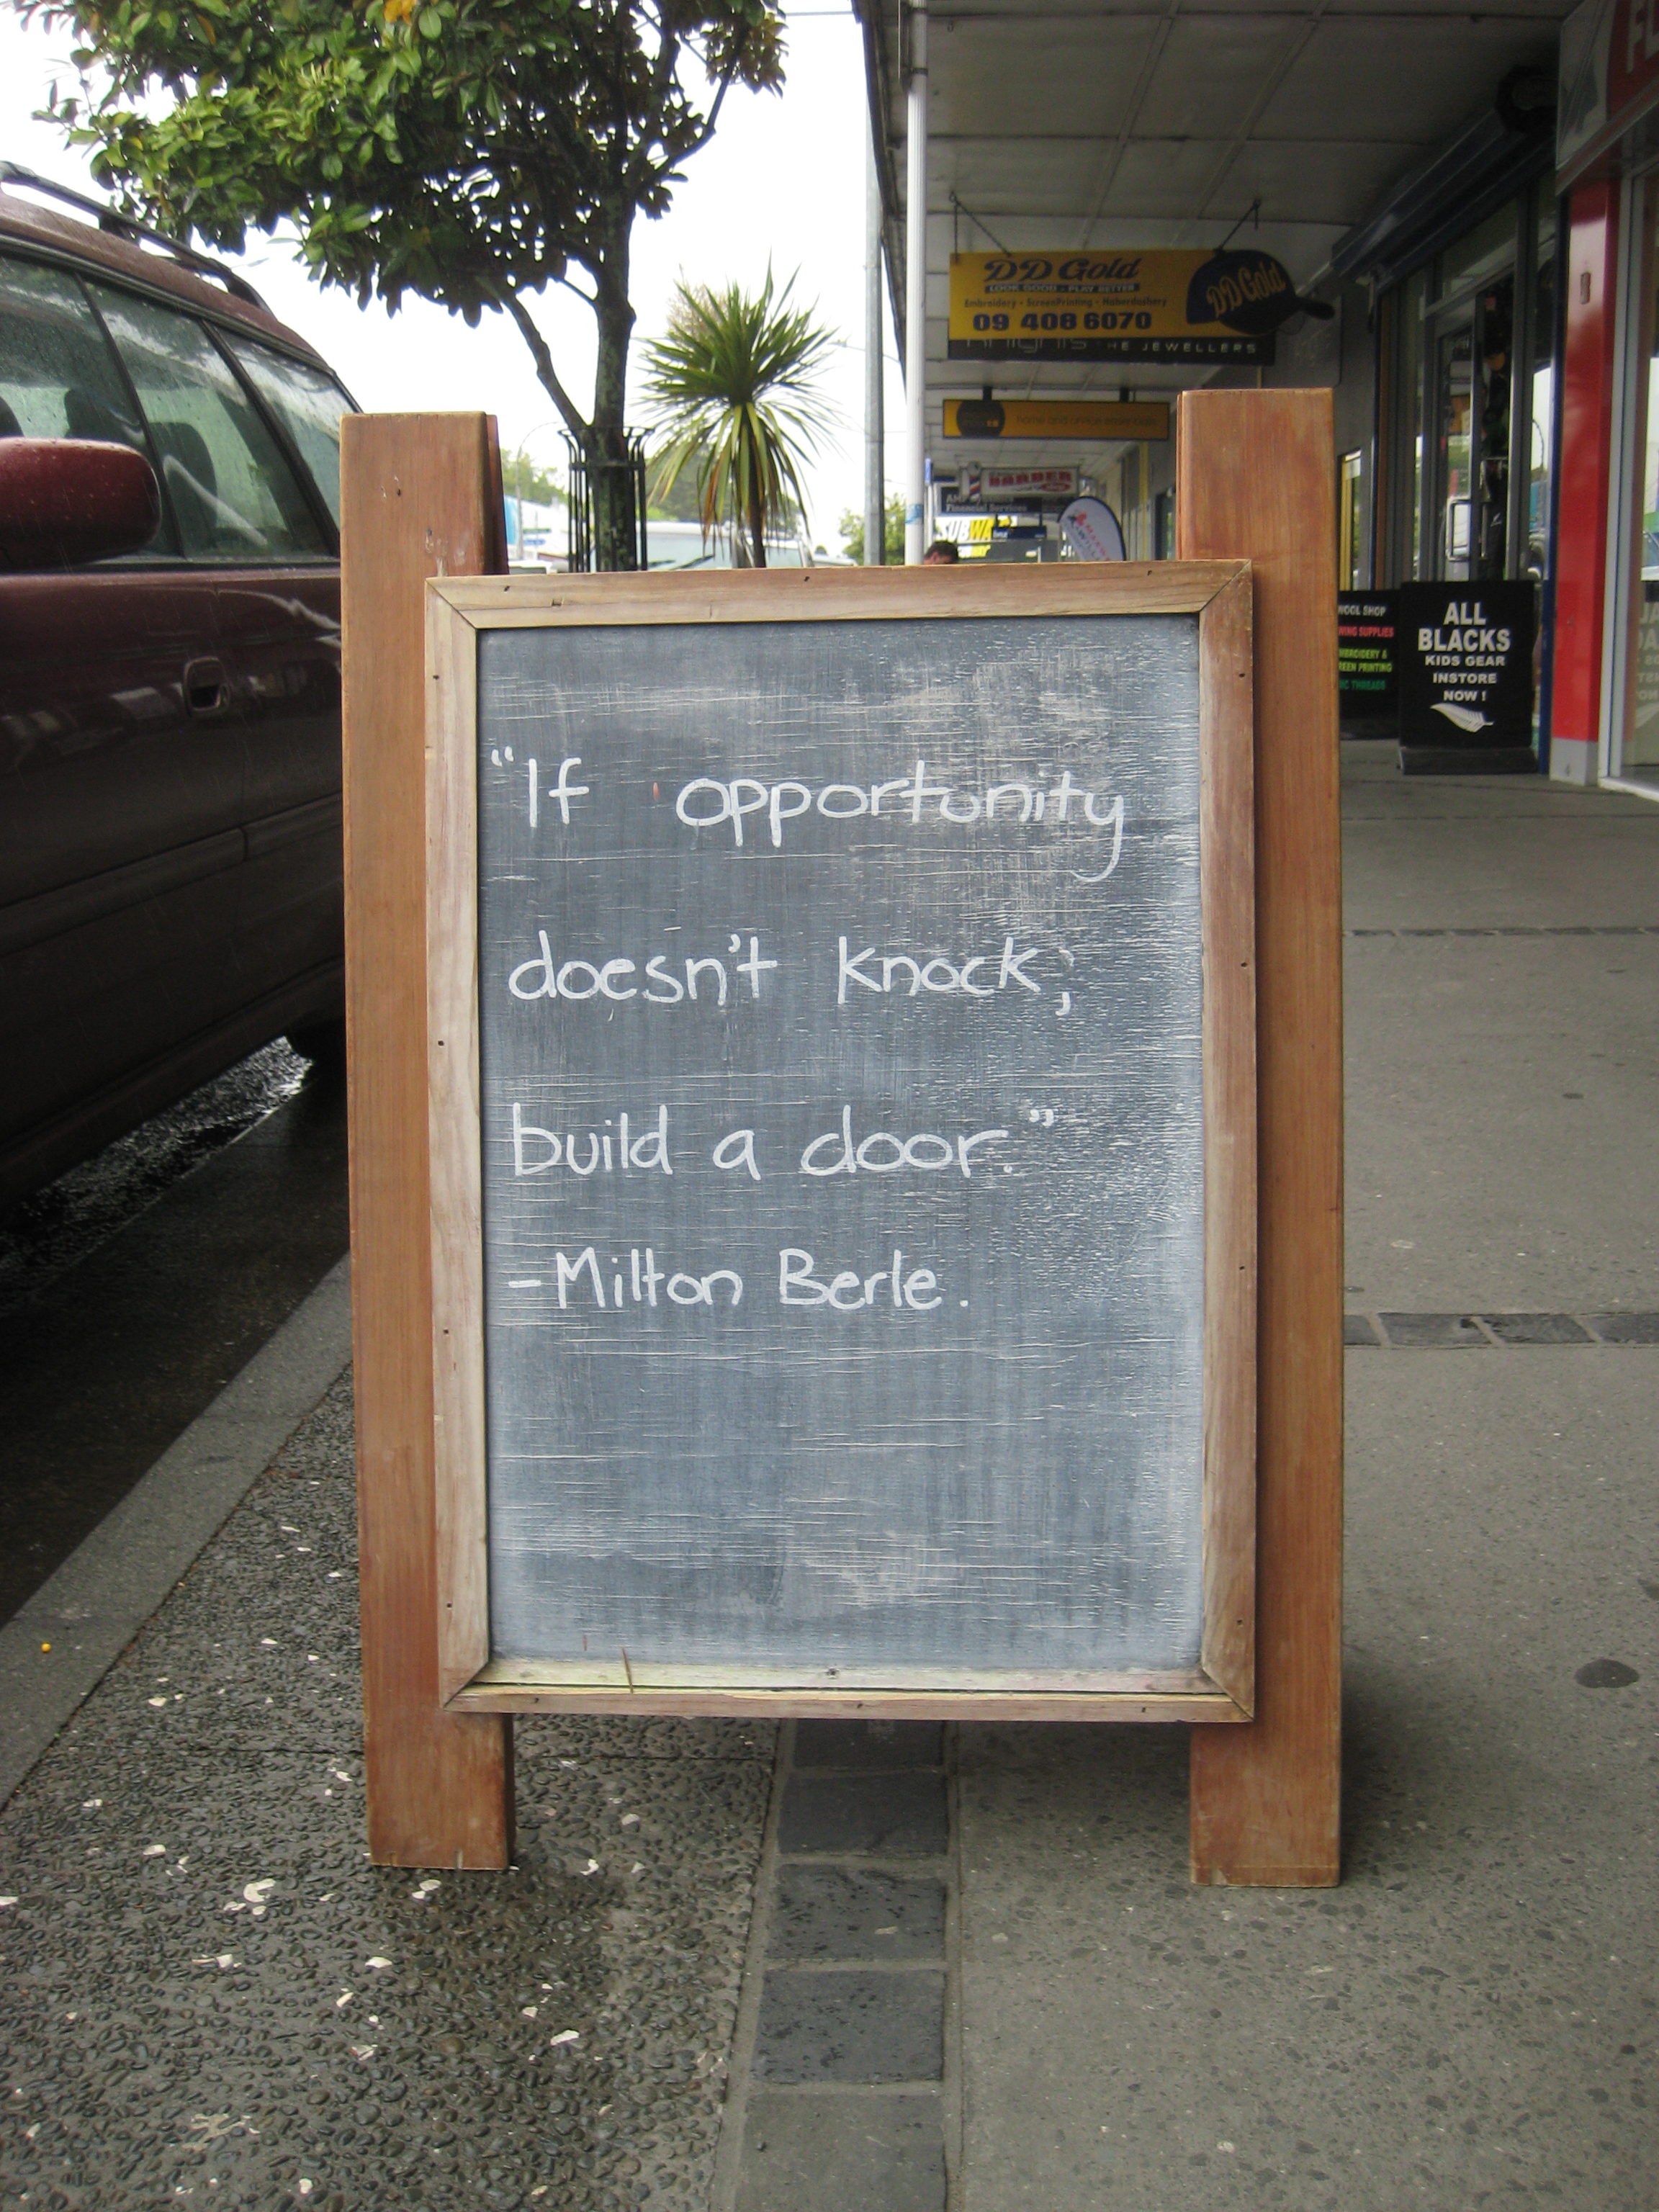 DD Gold
LOOK GOOD - PLAY BETTER
Embroidery • ScreenPrinting • Haberdashery
09 408 6070
DD Gold
THE JEWELLERS
BARBER
Financial Services
SUBWAY
WOOL SHOP
ALL
BLACKS
KIDS GEAR
INSTORE
NOW !
"If opportunity
doesn't knock;
build a door."
-Milton Berle.